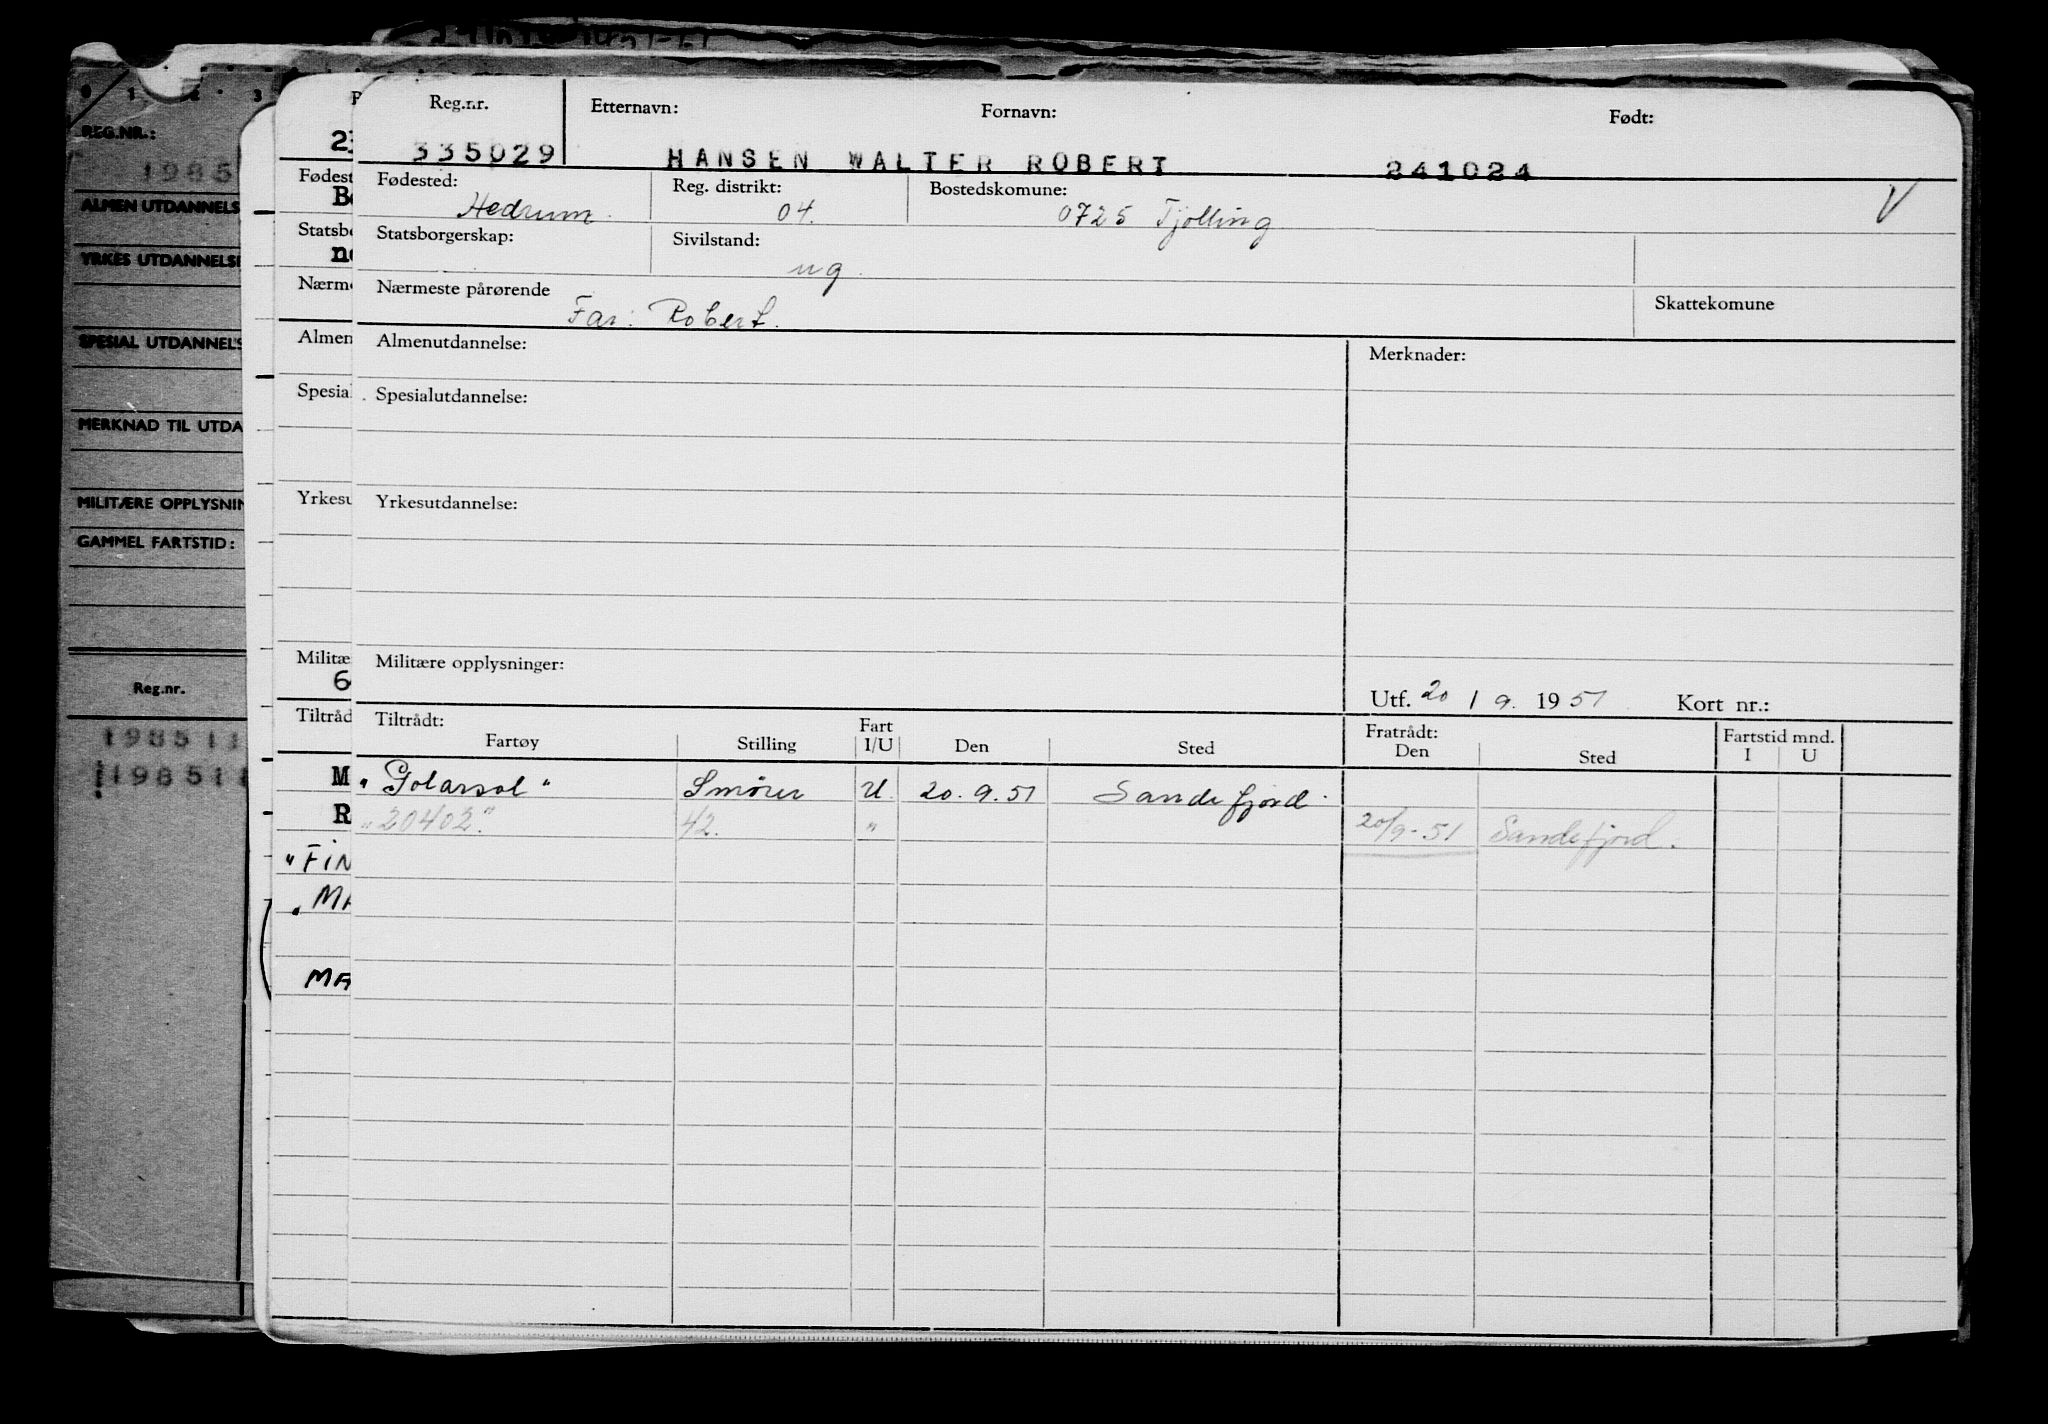 REG.NR.:
1985
ALMEN UTDANNELS
YRKES UTDANNELS
SPESIAL UTDANNELS
MERKNAD TIL UTDA
MILITÆRE OPPLYSNIN
GAMMEL FARTSTID:
Reg.nr.
198511
198511
Fødest
Statsbo
Nærme
Almen
Spesial
Yrkesu
Militæ
6
Tiltråd
M
R
"FIN
"MA
MA
Reg.nr. Etternavn: Fornavn: Født:
335029 HANSEN WALTER ROBERT 241024
Fødested: Reg. distrikt: Bostedskomune:
Hedrum 04. 0725 Tjølling V
Statsborgerskap: Sivilstand:
ug.
Nærmeste pårørende Skattekomune
Far: Robert.
Almenutdannelse: Merknader:
Spesialutdannelse:
Yrkesutdannelse:
Militære opplysninger:
Utf. 20 / 9. 1951 Kort nr.:
Tiltrådt: Fart Fratrådt: Fartstid mnd.
Fartøy Stilling I/U Den Sted Den Sted I U
"Polarsol" Smører U. 20.9.51 Sandefjord.
"20402". 42. " 20/9-51 Sandefjord.